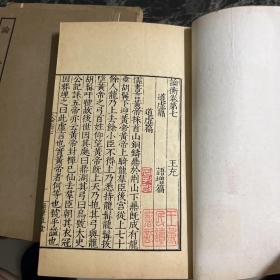 論衡卷第七
王充
道虛篇　語增篇
道虛篇
儒書言黃帝採首山銅鑄鼎於荊山下鼎既成有龍
垂胡髯下迎黃帝黃帝上騎龍羣臣後宮從上七十
餘人龍乃上去餘小臣不得上乃悉持龍髯龍髯拔
墮黃帝之弓百姓仰望黃帝既上天乃抱其弓與龍
胡髯吁號故後世因其處曰鼎湖其弓曰烏號太史
公記誄五帝亦云黃帝封禪已仙去羣臣朝其衣冠
因葬埋之曰此虛言也實黃帝者何等也號乎謚也
論